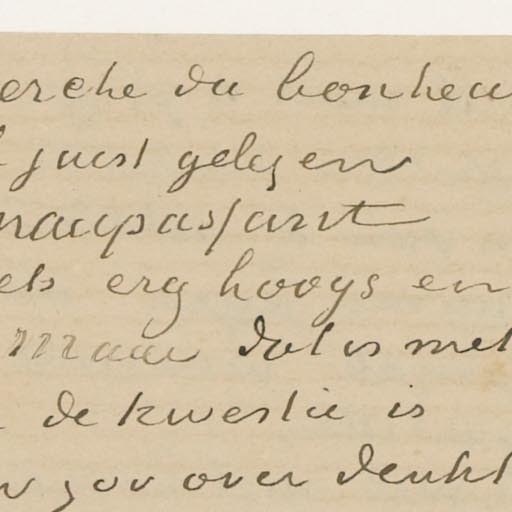 erche du bonheu
juist gelezen
maupassant
ets erg hoogs en
maar dat is met
de kwestie is
zoo over denkt